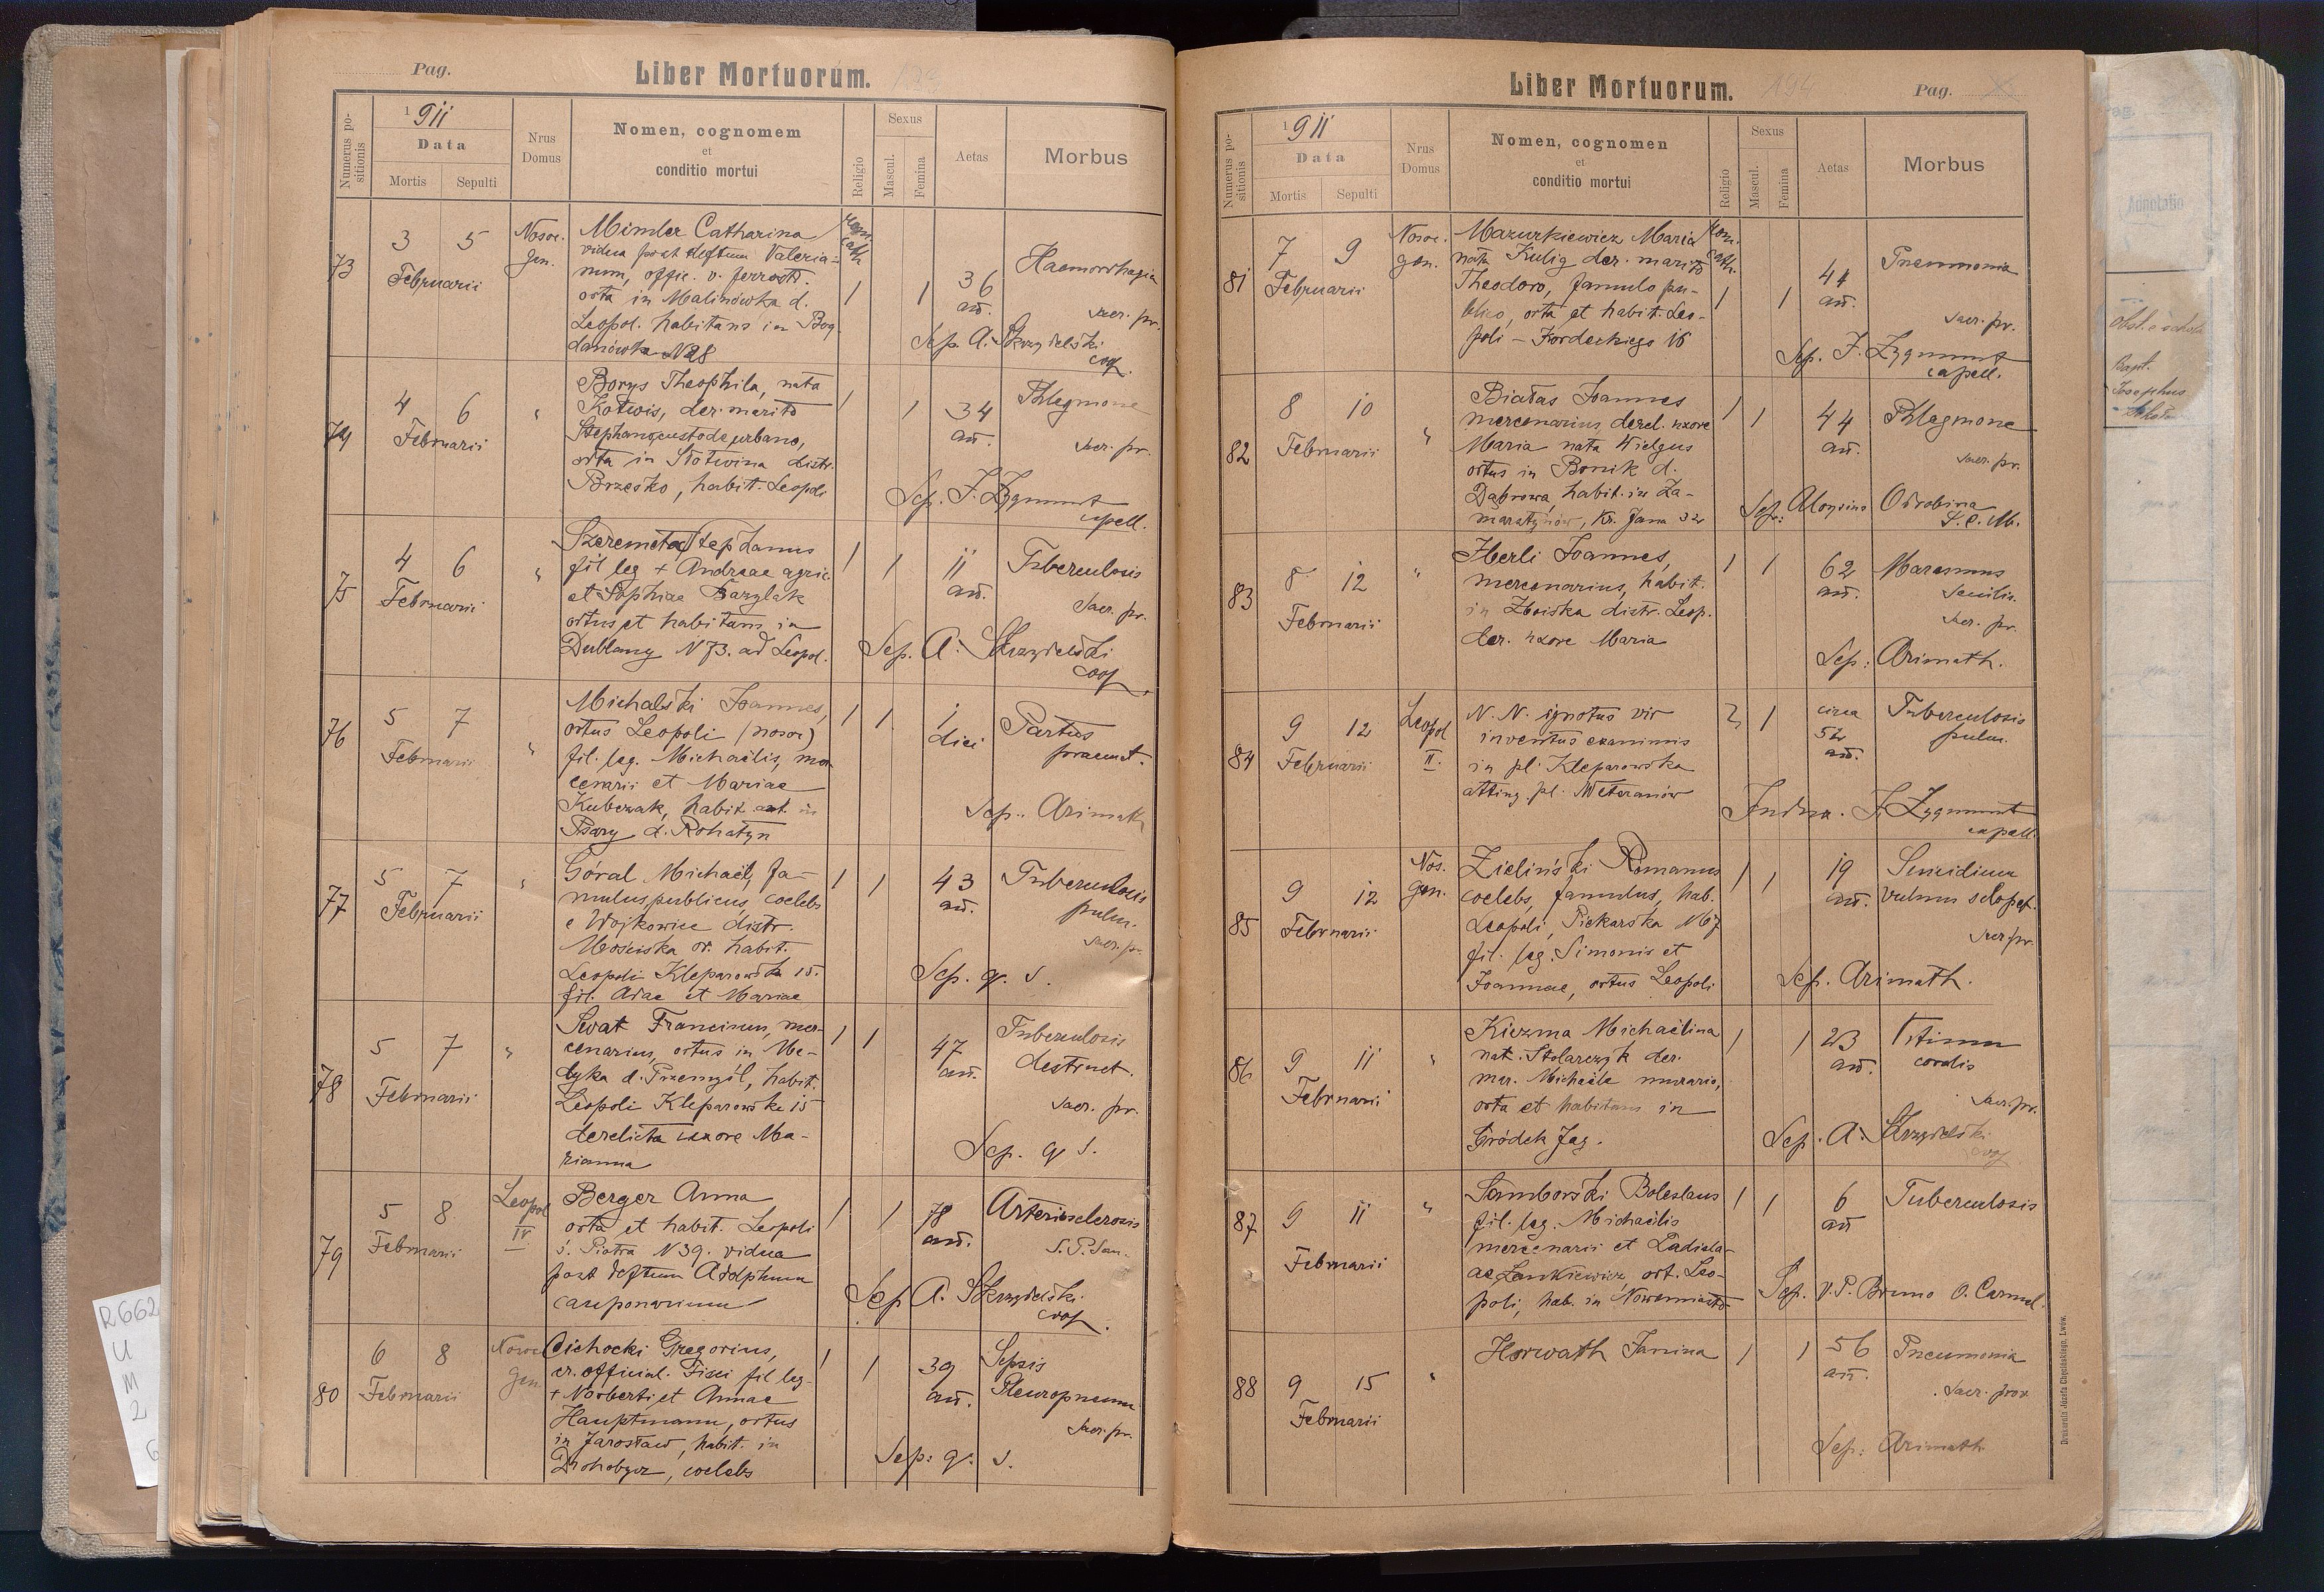 Pag.
Liber Mortuorum.
Numerus positionis
1911
Data
Mortis
Sepulti
Nrus Domus
Nomen, cognomem
et
conditio mortui
Religio
Sexus
Mascul.
Femina
Aetas
Morbus
73
3 5
Februarii
Nosoc.
gen.
Mimler Catharina
vidua post deftum Valeria-
num, offic. v. ferrostr.
orta in Malinówka d.
Leopol. habitans in Bog-
danówka N28
rom.
cath
1 1
36
an.
Haemorrhagia
sacr. pr.
Sep. A. Skrzydelski
coop.
74
4 6
Februarii
"
Borys Theophila, nata
Kotwis, der. marito
Stephano custode urbano,
orta in Słotwina distr.
Brzesko, habit. Leopoli
1 1
34
an.
Phlegmone
sacr. pr.
Sep. J. Zygmunt
capell.
75
4 6
Februarii
"
Szeremeta Stephanus
fil leg + Andreae agric.
et Sophiae Bazylak
ortus et habitans in
Dublany N 73. ad Leopol.
1 1
11
an.
Tuberculosis
sacr. pr.
Sep. A. Skrzydelski
coop.
76
5 7
Februarii
"
Michalski Joannes,
ortus Leopoli (nosoc)
fil. leg. Michaëlis, mer-
cenarii et Mariae
Kubczak, habit. in
Psary d. Rohatyn
1 1
1
diei
Partus
praemat.
Sep. Arimath
77
5 7
Februarii
"
Góral Michaël, fa-
mulus publicus, coelebs
e Wojkowice distr.
Mościska or. habit.
Leopoli Kleparowska 15.
fil. Adae et Mariae
1 1
43
an.
Tuberculosis
pulm.
sacr. pr.
Sep. q. s.
78
5 7
Februarii
"
Swat Franciscus, mer-
cenarius, ortus in Me-
dyka d. Przemyśl, habit.
Leopoli Kleparowska 15
derelicta uxore Ma-
rianna
1 1
47
an.
Tuberculosis
destruct.
sacr. pr.
Sep. q s.
79
5 8
Februarii
Leopol
IV.
Berger Anna
orta et habit. Leopoli
ś. Piotra N39. vidua
post deftum Adolphum
cauponarium
1 1
78
an.
Arteriosclerosis
Sep A. Skrzydelski
coop.
80
6 8
Februarii
gen
Cichocki Gregorius,
cr. official. Fisci fil leg.
+ Norberti et Annae
Hauptmann, ortus
in Jarosław, habit. in
Drohobycz, coelebs
1 1
39
an.
Sepsis
Pleuropneum
sacr. pr.
Sep: q. s.
Liber Mortuorum.
194
Pag.
Numerus positionis
1911
Data
Mortis
Sepulti
Nrus
Domus
Nomen, cognomen
et
conditio mortui
Religio
Sexus
Mascul.
Femina
Aetas
Morbus
81
7 9
Februarii
Nosoc.
gen.
Mazurkiewicz Maria
nata Kulig der. marito
Theodoro, famulo pu-
blico, orta et habit. Leo-
poli - Kordeckiego 16
rom.
cath.
1 1
44
an.
Pneumonia
sacr. pr.
Sep. J. Zygmunt
capell.
82
8 10
Februarii
"
Białas Joannes
mercenarius, derel. uxore
Maria nata Wielgus
ortus in Bonik d.
Dąbrowa, habit. in Za-
marstynów, Kr. Jana 32
1 1
44
an.
Phlegmone
sacr. pr.
Sep: Aloysius Odrobina
S. C. M.
83
8 12
Februarii
"
Hberli Joannes,
mercenarius, habit.
in Zboiska distr. Leop.
der. uxore Maria
1 1
62
an.
Marasmus
senilis.
sacr. pr.
Sep: Arimath.
84
9 12
Februarii
Leopol
II.
N. N. ignotus vir
inventus exanimis
in pl. Kleparowska
atting. pl. Weteranów
? 1
circa
52
an.
Tuberculosis
pulm.
J. Zygmunt
capell.
85
9 12
Februarii
Nos.
gen.
Zieliński Romanus
coelebs, famulus, hab.
Leopoli, Piekarska N67
fil. leg. Simonis et
Joannae, ortus Leopoli
1 1
19
an.
Suicidium
vulnus sclopet.
sacr pr.
Sep. Arimath.
86
9 11
Februarii
"
Kiczma Michaëlina
nat. Stolarczyk der.
mar. Michaële murario,
orta et habitans in
Gródek Jag.
1 1
23
an.
Vitium
cordis
sacr. pr.
Sep. A. Skrzydelski
coop
87
9 11
Februarii
"
Samborski Boleslaus
fil. leg. Michaëlis
mercenarii et Ladisla-
ae Lankiewicz, ort. Leo-
poli, hab. in Nowemiasto
1 1
6
an
Tuberculosis
Sep. V. P. Bruno O. Carmel.
88
9 15
Februarii
"
Horwath Janina
1 1
56
an.
Pneumonia
sacr. prov.
Sep: Arimath
Drukarnia Józefa Chęcińskiego, Lwów.
Adnotatio
Josephus
R662
U
M
2